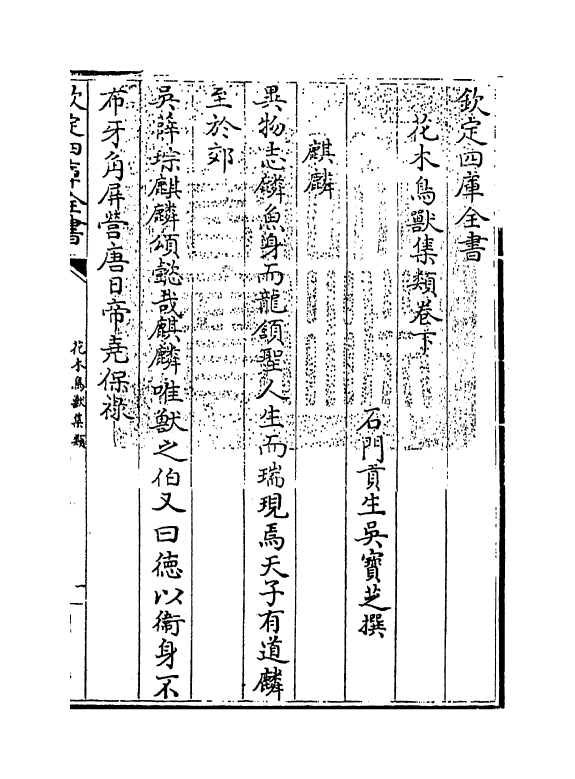 欽定四庫全書
花木鳥獸集類卷下
石門貢生吳寶芝撰
麒麟
異物志麟魚身而龍頷聖人生而瑞現焉天子有道麟
至於郊
吳薛琮麒麟頌懿哉麒麟唯獸之伯又曰德以衛身不
布牙角屏營唐日帝堯保禄
欽定四庫全書
花木鳥獸集類
一